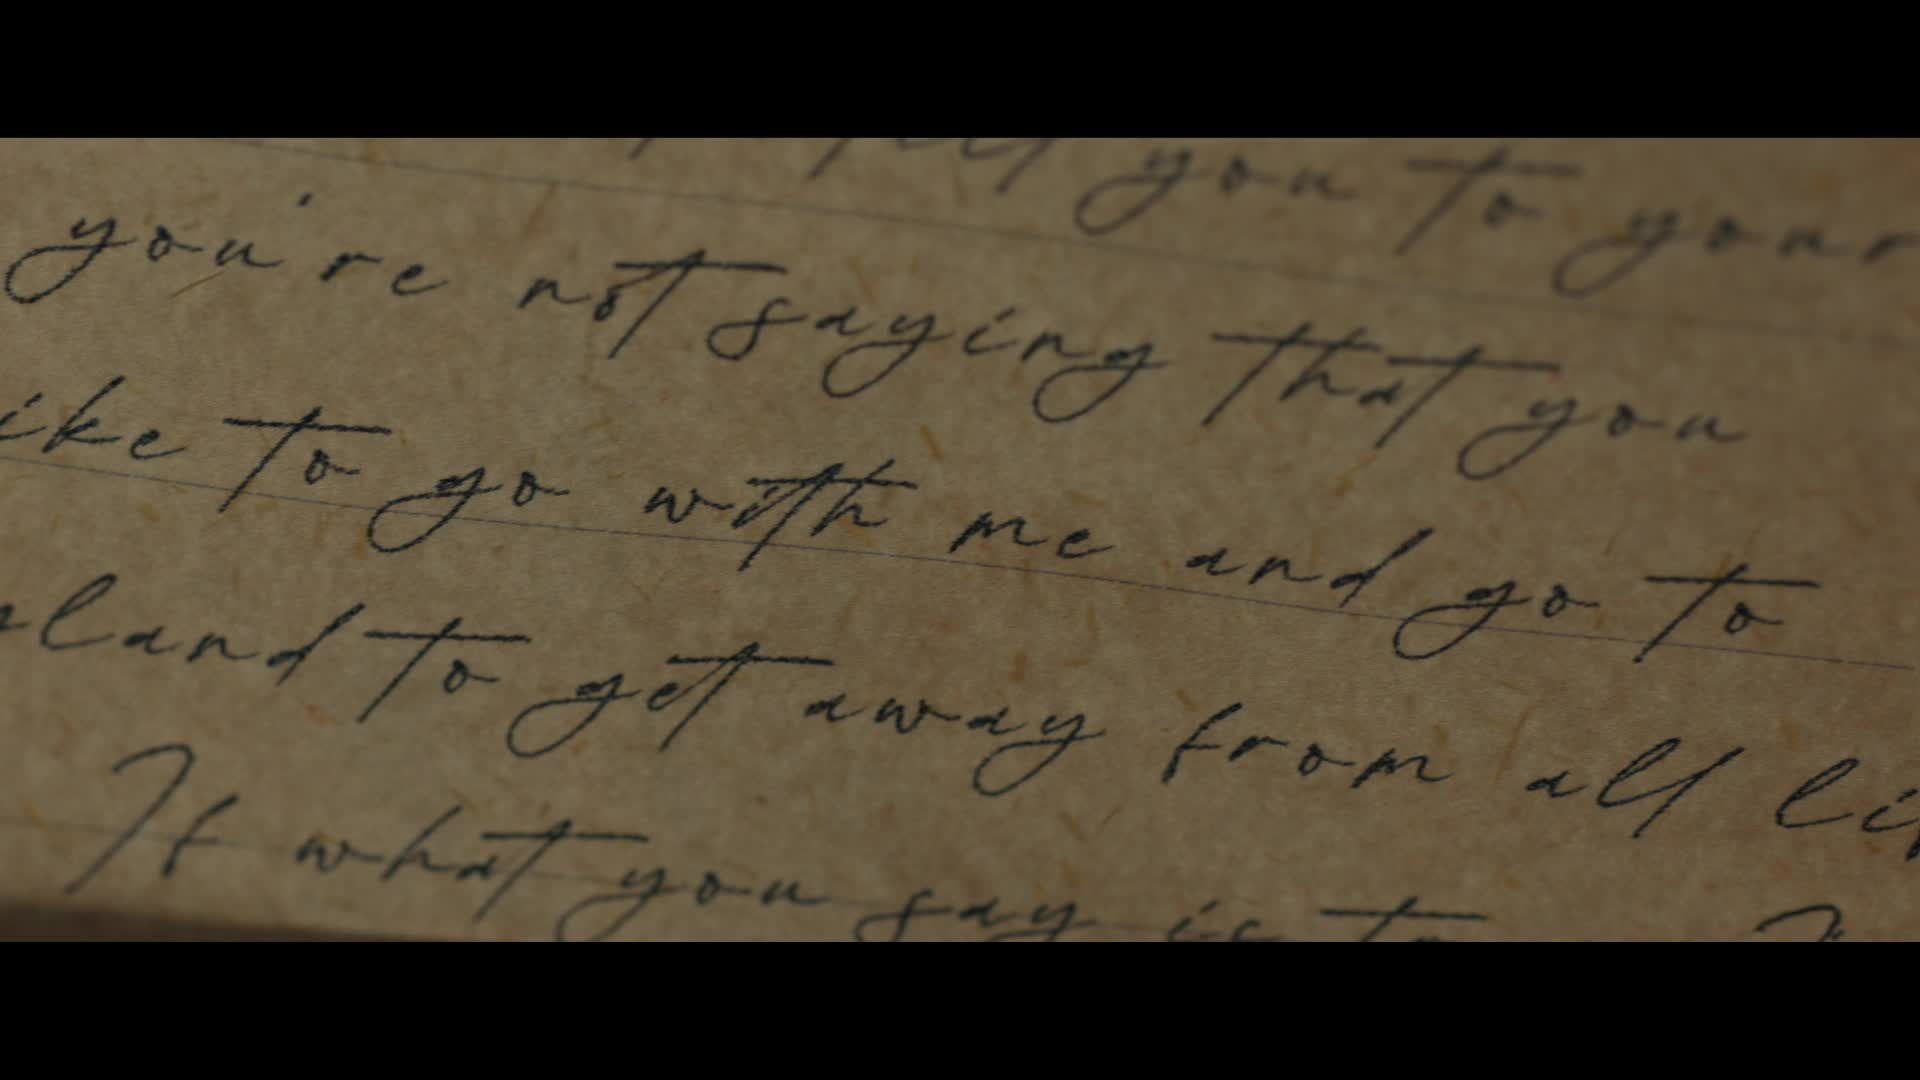 you to your
you're not saying that you
ike to go with me and go to
land to get away from all li
If what you say is